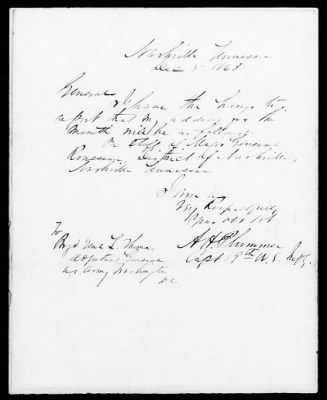 Nashville Tennessee
Dec 5th 1863
General
I have the honor to
report that my address for the
month will be as follows.
On Staff of Major General
Rousseau, District of Nashville,
Nashville Tennessee
I am
Very Respectfully
Your obt svt
A H Plummer
Capt 19th U.S. Infty.
To
Brig Genl L. Thomas
Adjutant General
U.S. Army Washington
D.C.